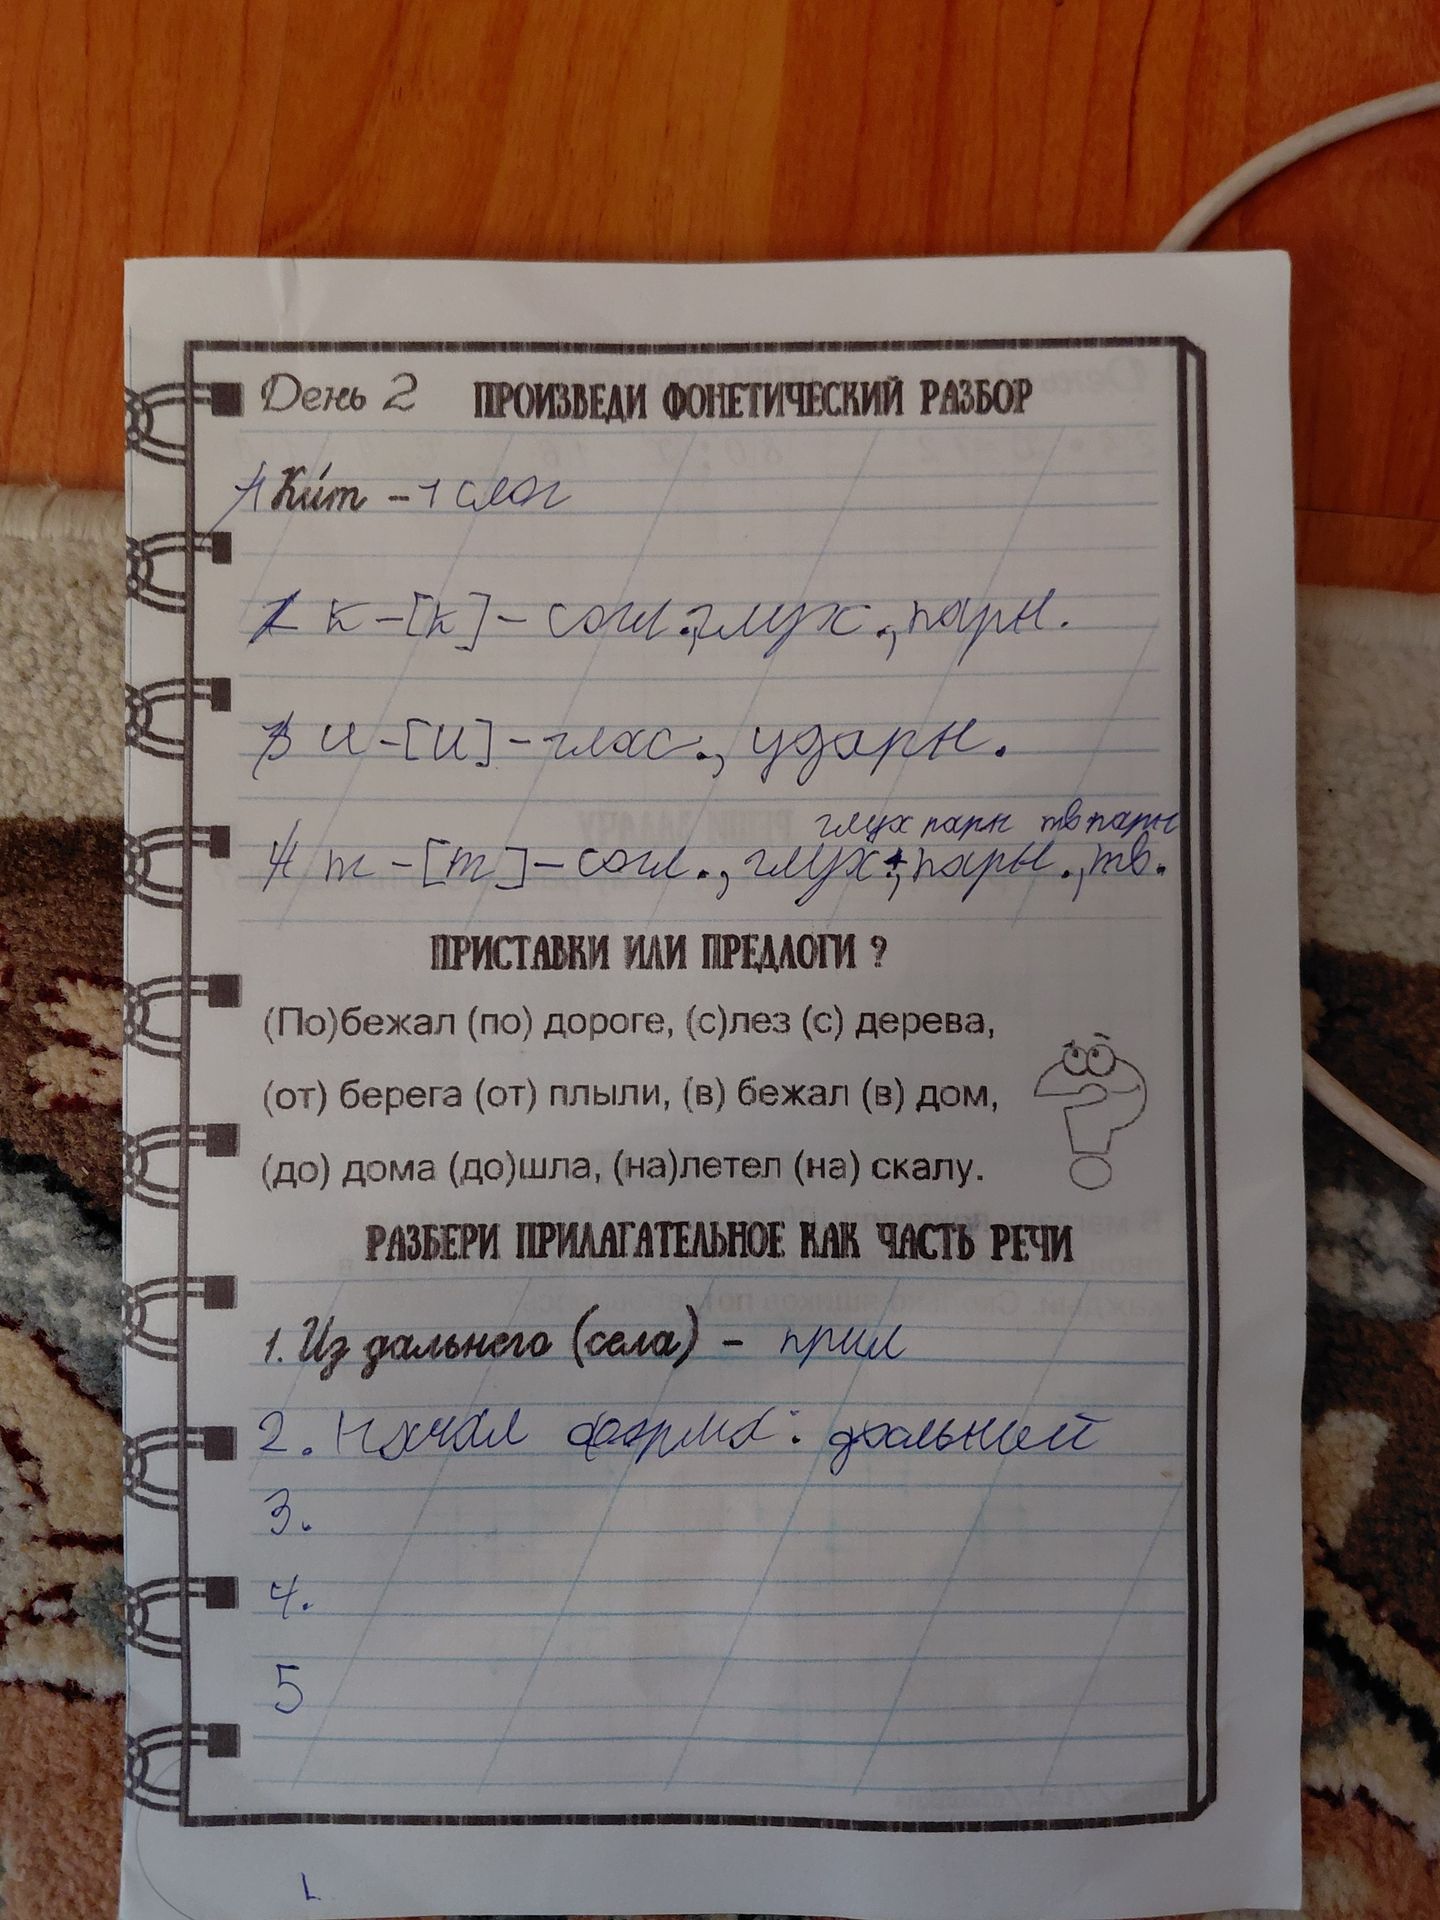 День 2 ПРОИЗВЕДИ ФОНЕТИЧЕСКИЙ РАЗБОР
1 Ки́т – 1 слог
2 к – [к] – согл., глух., парн.
3 и – [и] – глас., ударн.
глух парн тв парн
4 т – [т] – согл., глух., парн., тв.
ПРИСТАВКИ ИЛИ ПРЕДЛОГИ ?
(По)бежал (по) дороге, (с)лез (с) дерева,
(от) берега (от) плыли, (в) бежал (в) дом,
(до) дома (до)шла, (на)летел (на) скалу.
РАЗБЕРИ ПРИЛАГАТЕЛЬНОЕ КАК ЧАСТЬ РЕЧИ
1. Из дальнего (села) – прил
2. Начал форма: дальний
3.
4.
5